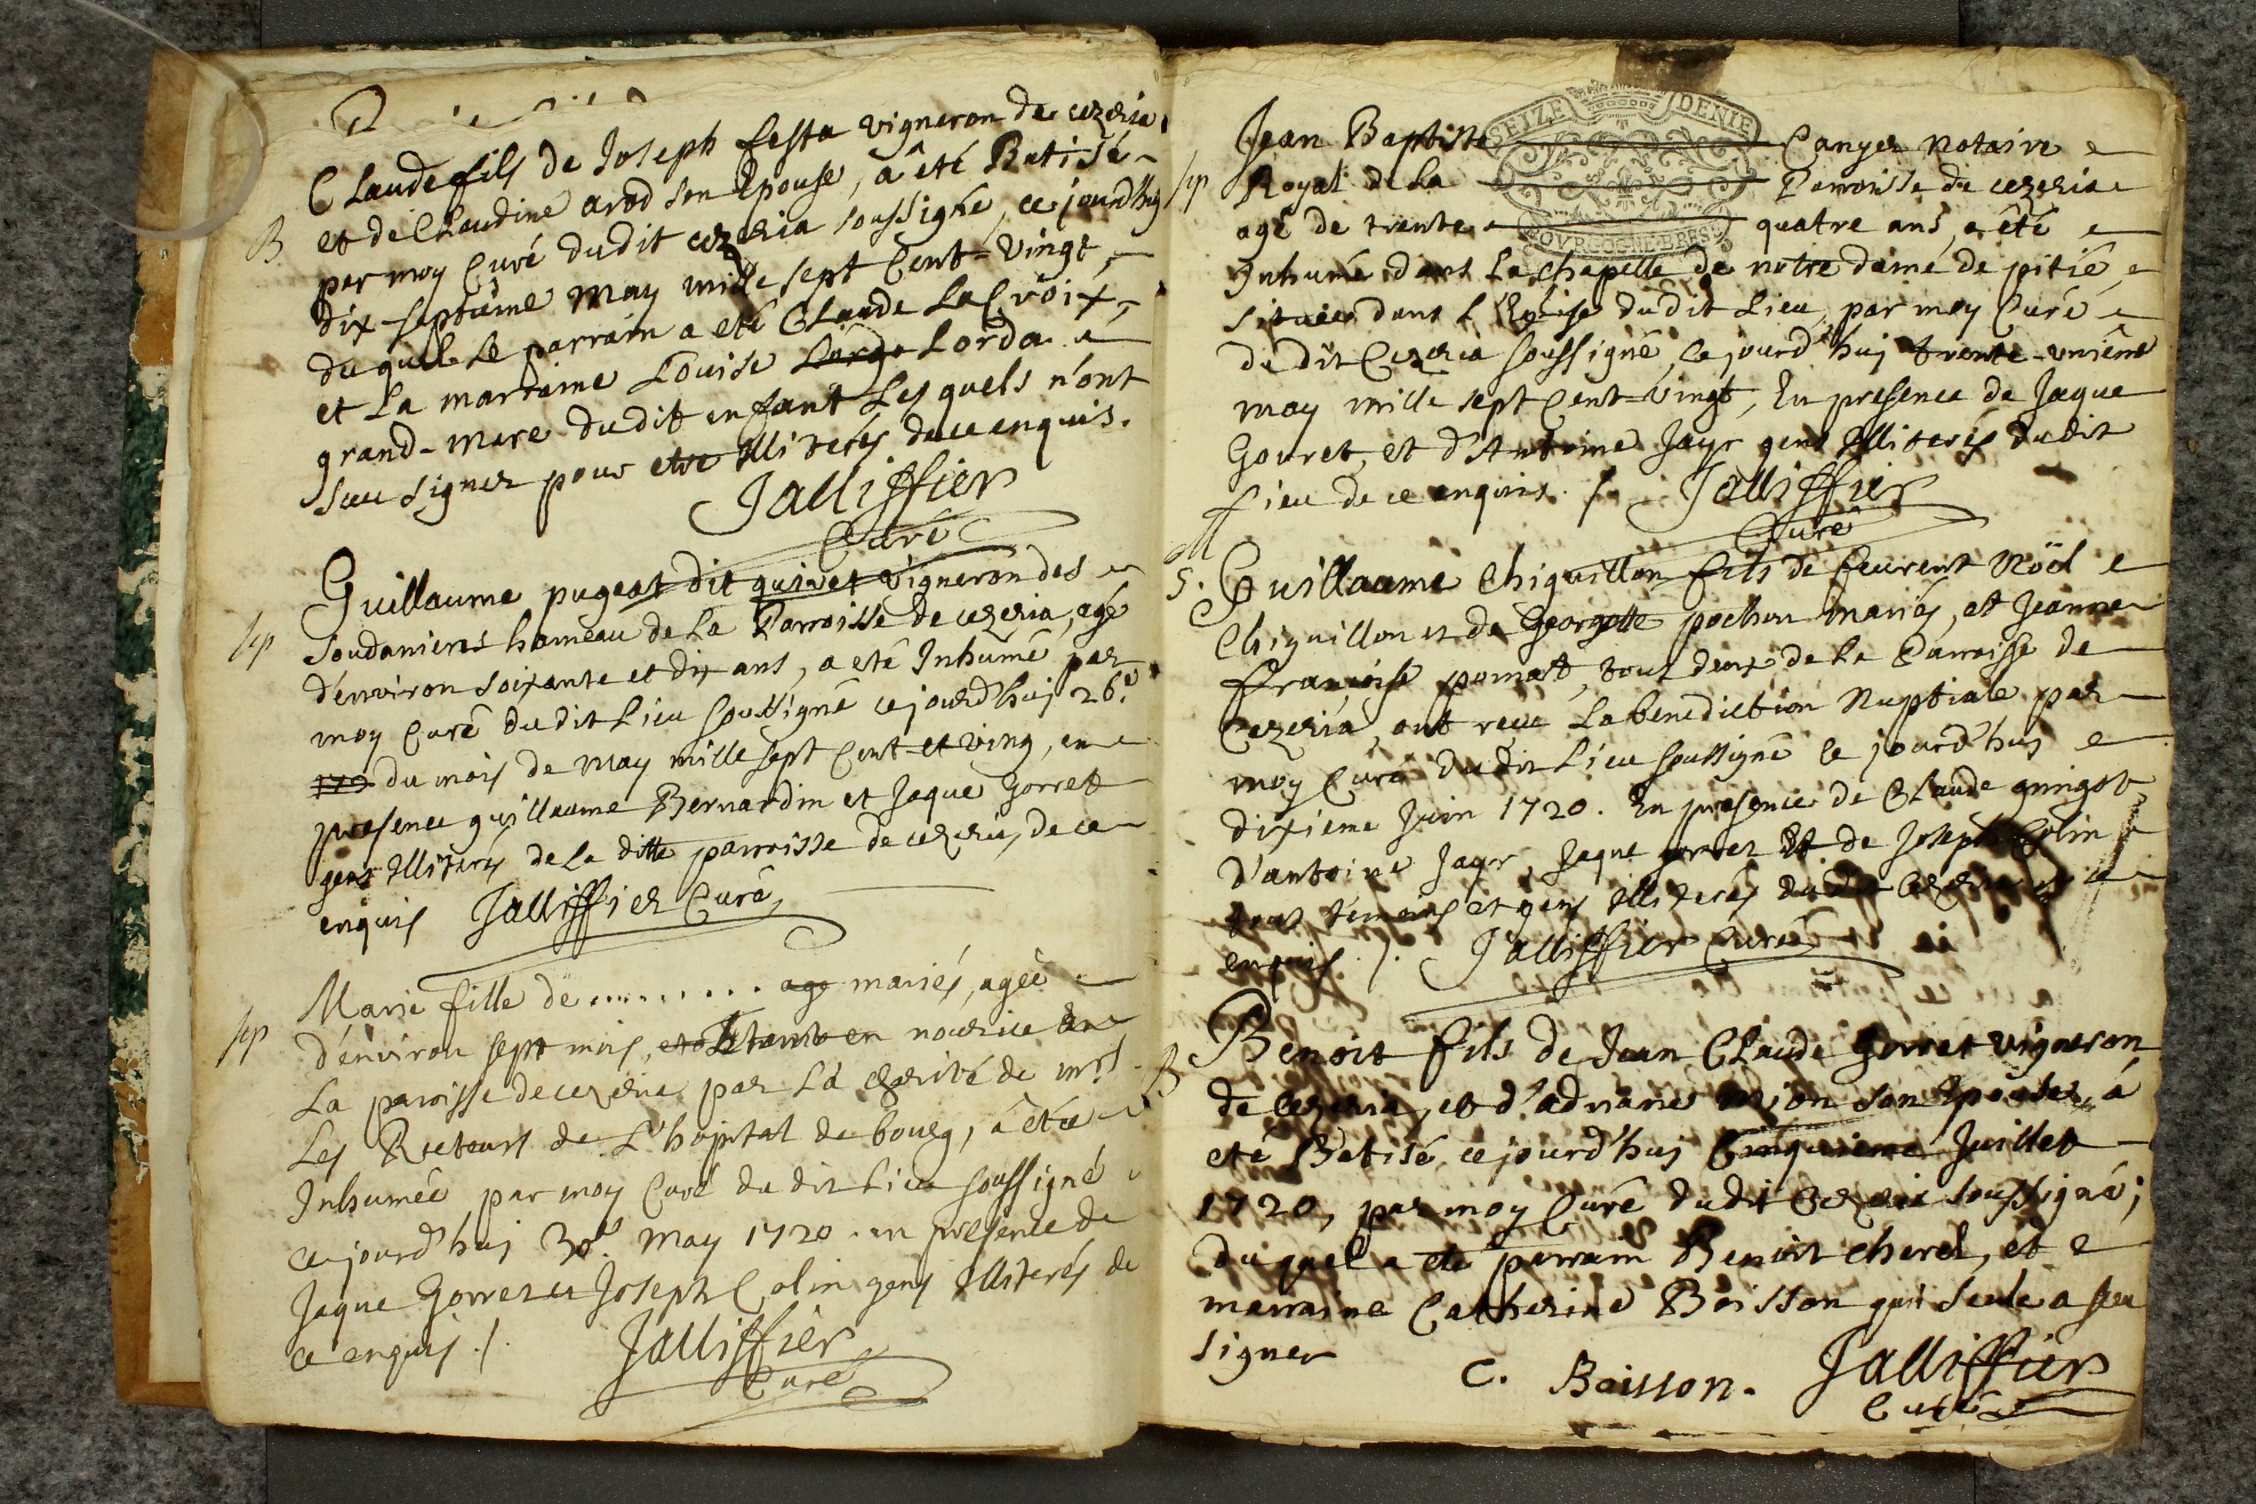 CLaude fils de Joseph festa vigneron de cezeria
B et de CLaudine arod son Epouse, a êté Batisé
par moy Curé dudit cezeria soussigné, ce jourd'huy
dix-septiême may mille sept Cent-vingt,
duquel Le parrain a eté CLaude LaCroix,
et La marraine Loüise Lorda
grand-mere dudit enfant Lesquels n'ont
sceu signer pour etre Illiterés de ce enquis.
Jalliffier
Curé
Guillaume pugeat dit quivet vigneron des
sep Soudanieres hameau de La Parroisse de cezeria, agé
d'environ soixante et dix ans, a eté Inhumê par
moy Curé dudit Lieu soussigné cejourd'huj 26.e
du mois de may mille sept Cent et ving, en
presence guillaume Bernardin et Jaque Gorret
gens Illiterés de La ditte parroisse de cezeria, de ce
enquis Jalliffier Curé
Marie fille de .......... age mariés, agée
sep d'environ sept mois, en nourice en
La parroisse de cezeria par La charité de mrs
Les Recteurs de L'hopital de bourg, a êtée
Inhumée par moy Curé dudit Lieu soussigné
cejourd'huj 30e. may 1720. en presence de
Jaque Gorret et Joseph Colin gens Illiterés de
ce enquis ./. Jalliffier
Curé
SEIZE DENIE
BOVRGOGNE BRESS
Jean Baptiste Canyer notaire
sep Royal de La Parroisse de cezeria
agé de trente quatre ans, a êté
Inhumé dans La chapelle de notre dame de pitié,
située dans L'Eglise dudit Lieu, par moy Curé
dudit Cezeria soussigné, ce jourd'huj trente-uniême
may mille sept Cent-vingt, En presence de Jaque
Gorret, et d'Antoine Jayr gens Illiterés dudit
Lieu de ce enquis. /. Jalliffier
Curé
M
5. Guillaume Chiquillon fils de feu Noël
Chiquillon et de Georgette pochon mariés, et Jeanne
françoise pomat, tous deux de La Parroisse de
Cezeria, ont receu La benediction Nuptiale par
moy Curé dudit Lieu soussigné ce jourd'huj
dixieme Juin 1720. En presence de CLaude guigot,
d'antoine Jayr, Jaque gorret Et de Joseph Colin
tous témoins et gens Illiterés dudit Cezeria de ce
enquis ./. Jalliffier Curé
Benoit fils de Jean CLaude Gorret vigneron
B de Cezeria, et d'adriane mion son Epouse, á
eté Batisé cejourd'huj Cinquieme Juillet
1720, par moy Curé dudit Cezeria soussigné;
duquel a eté parrain Benoit cherel, et
marraine Catherine Boisson qui seule a sceu
signer
C. Boisson. Jalliffier
Curé